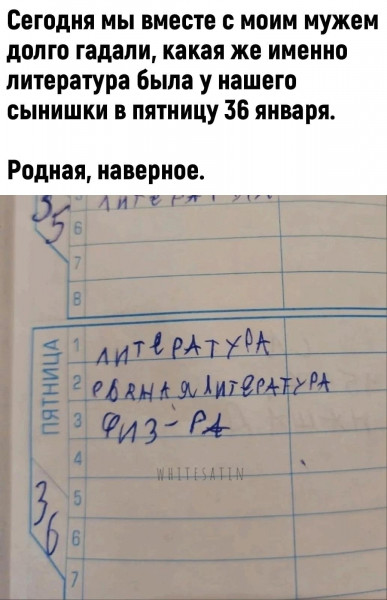 Сегодня мы вместе с моим мужем
долго гадали, какая же именно
литература была у нашего
сынишки в пятницу 36 января.
Родная, наверное.
35
ЛИТЕРАТУРА
6
7
8
ПЯТНИЦА
1 ЛИТЕРАТУРА
2 РВАНАЯ ЛИТЕРАТУРА
3 ФИЗ-РА
4
WHITESATIN
36
5
6
7